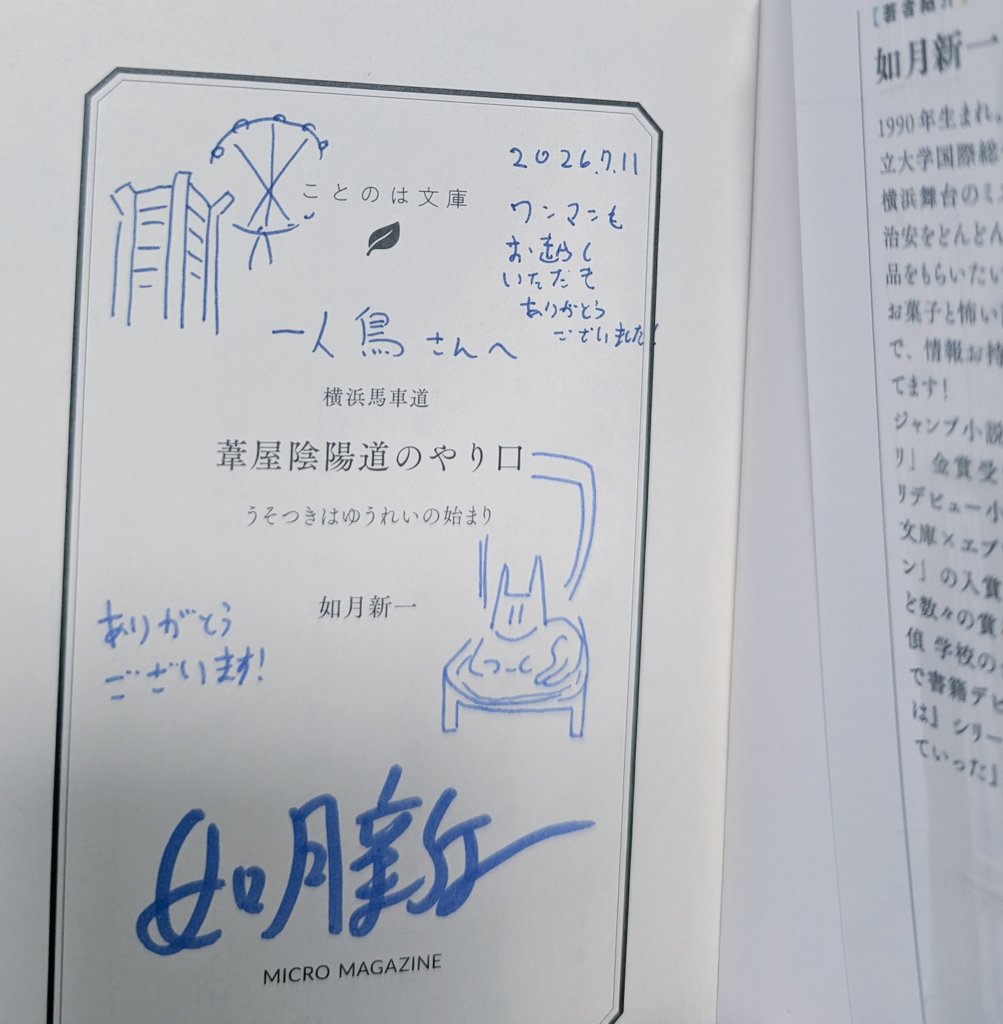 ことのは文庫
2026.7.11
ワンマンも
お越し
いただき
ありがとう
ございました!
一人鳥さんへ
横浜馬車道
葦屋陰陽道のやり口
うそつきはゆうれいの始まり
如月新一
ありがとう
ございます!
如月新一
MICRO MAGAZINE
【著者紹介】
如月新一
1990年生まれ。
立大学国際総合
横浜舞台のミ
治安をどんどん
品をもらいたい
お菓子と怖い
で、情報お持
てます!
ジャンプ小説
リ」金賞受
リデビュー小
文庫×エブ
ン」の入賞
と数々の賞
偵 学校の
で書籍デビ
は』シリー
ていった』